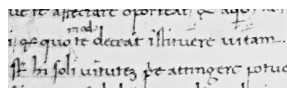 te affectare oporteat, &
mo
i, & quo te deceat istituere uitam
hi soli uirtutez attingere potue